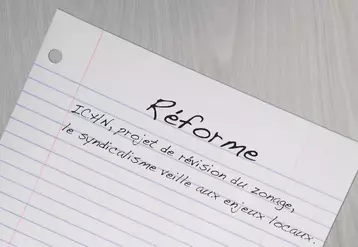 Réforme
ICHN, projet de révision du zonage,
le syndicalisme veille aux enjeux locaux.